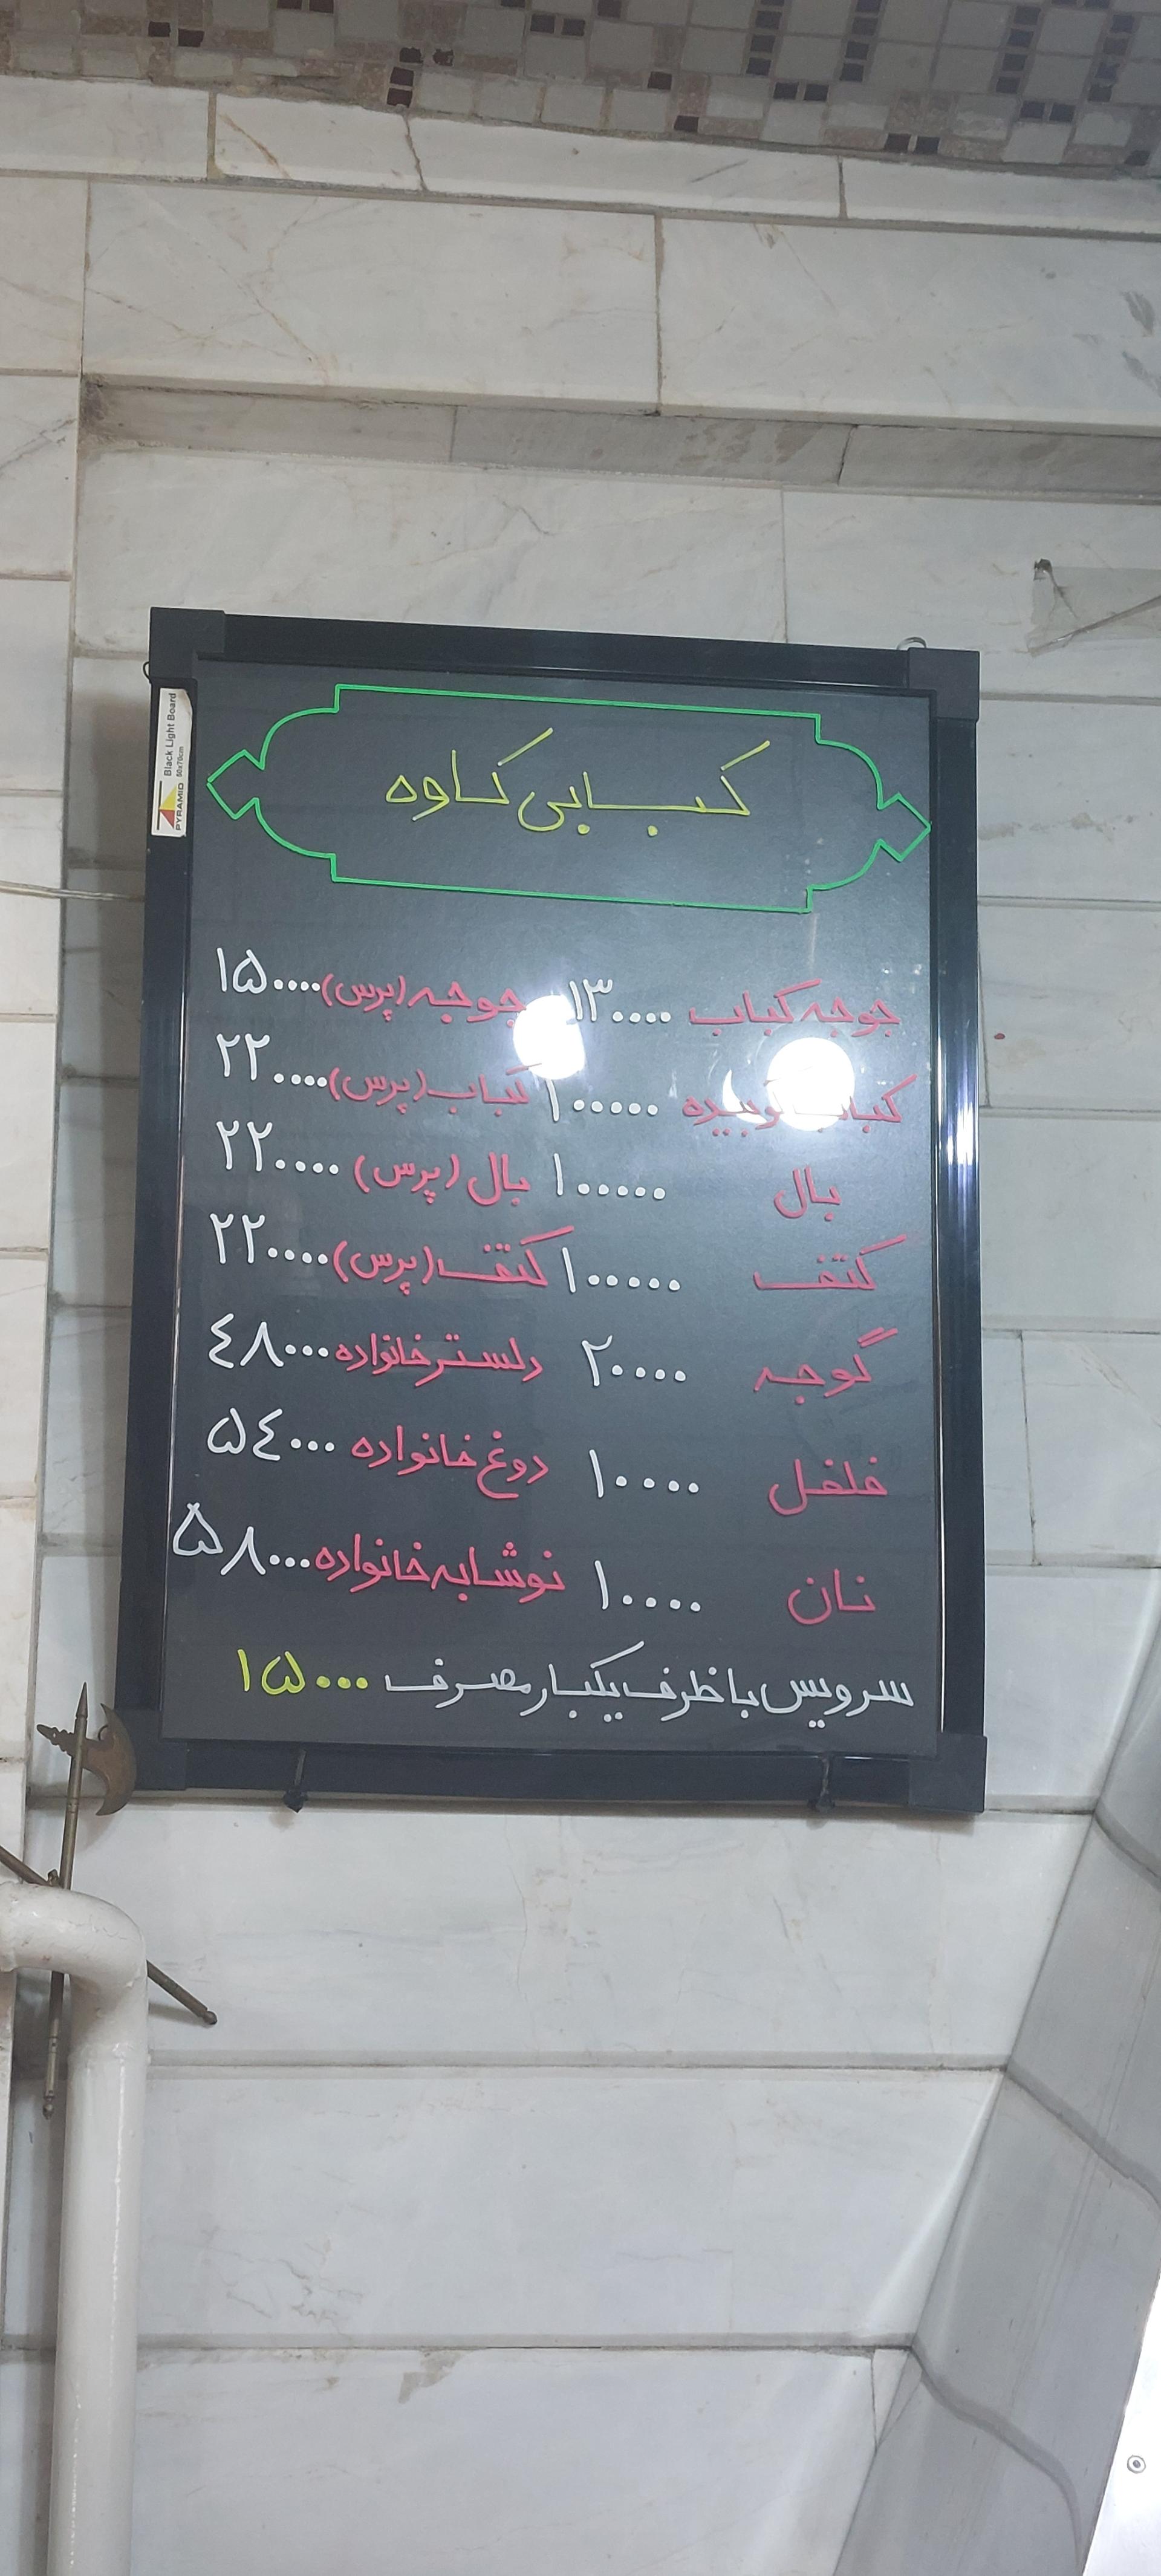 کبابی کاوه
جوجه کباب ۱۳۰۰۰۰ جوجه (پرس) ۱۵۰۰۰۰
کباب کوبیده ۱۰۰۰۰۰ کباب (پرس) ۲۲۰۰۰۰
بال ۱۰۰۰۰۰ بال (پرس) ۲۲۰۰۰۰
کتف ۱۰۰۰۰۰ کتف (پرس) ۲۲۰۰۰۰
گوجه ۲۰۰۰۰ دلستر خانواده ۴۸۰۰۰
فلفل ۱۰۰۰۰ دوغ خانواده ۵۴۰۰۰
نان ۱۰۰۰۰ نوشابه خانواده ۵۸۰۰۰
سرویس با ظرف یکبار مصرف ۱۵۰۰۰
PYRAMID Black Light Board
50x70cm